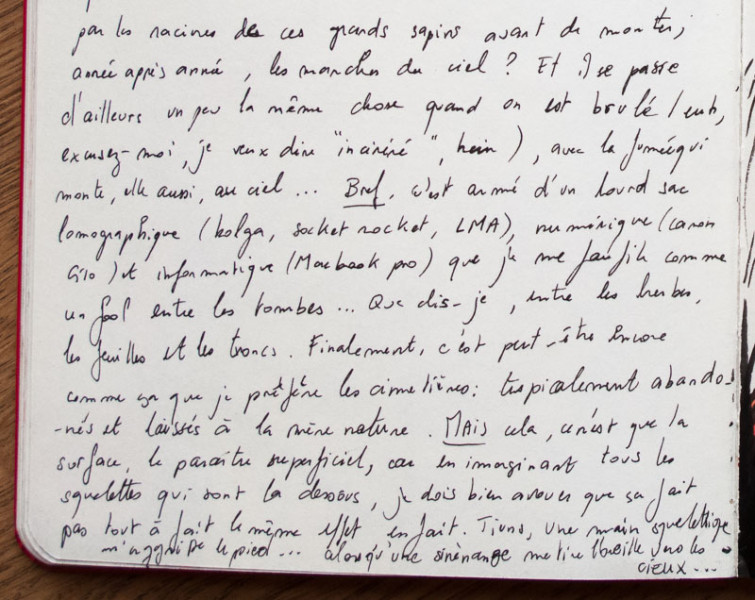 par les racines de ces grands sapins avant de monter,
année après année, les marches du ciel ? Et il se passe
d'ailleurs un peu la même chose quand on est brulé (euh,
excusez-moi, je veux dire "incinéré", hein), avec la fumée qui
monte, elle aussi, au ciel ... Bref, c'est armé d'un lourd sac
lomographique (holga, socket rocket, LMA), numérique (canon
) et informatique (Macbook pro) que je me faufile comme
un fool entre les tombes ... Que dis-je, entre les herbes,
les feuilles et les troncs. Finalement, c'est peut-être encore
comme ça que je préfère les cimetières : tropicalement abando-
-nés et laissés à la mère nature. MAIS cela, ce n'est que la
surface, le paraître superficiel, car en imaginant tous les
squelettes qui sont la dessous, je dois bien avouer que ça fait
pas tout à fait le même effet en fait. Tiens, une main squelettique
m'aggripe le pied ... alors qu'une me tire l'oreille vers les
cieux ...